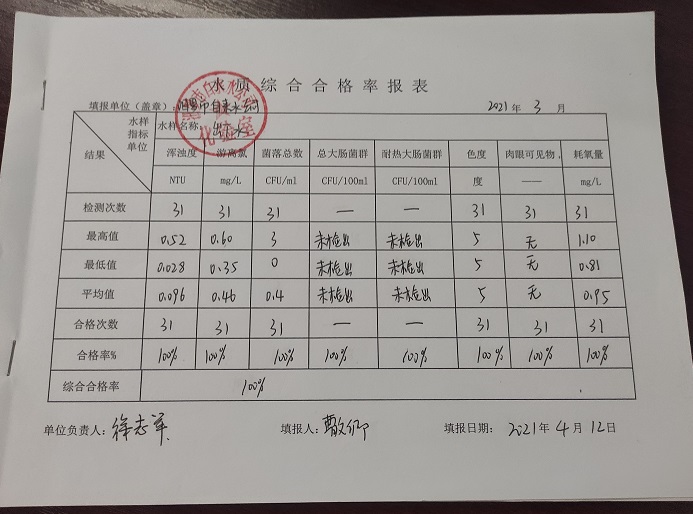 水质综合合格率报表
填报单位(盖章): 自来水公司 2021年3月
水样 指标 单位 结果 水样名称: 出厂水
浑浊度 游离氯 菌落总数 总大肠菌群 耐热大肠菌群 色度 肉眼可见物, 耗氧量
NTU mg/L CFU/ml CFU/100ml CFU/100ml 度 —— mg/L
检测次数 31 31 31 — — 31 31 31
最高值 0.52 0.60 3 未检出 未检出 5 无 1.10
最低值 0.028 0.35 0 未检出 未检出 5 无 0.81
平均值 0.096 0.46 0.4 未检出 未检出 5 无 0.95
合格次数 31 31 31 — — 31 31 31
合格率% 100% 100% 100% 100% 100% 100% 100% 100%
综合合格率 100%
单位负责人: 徐志军 填报人: 填报日期: 2021年4月12日